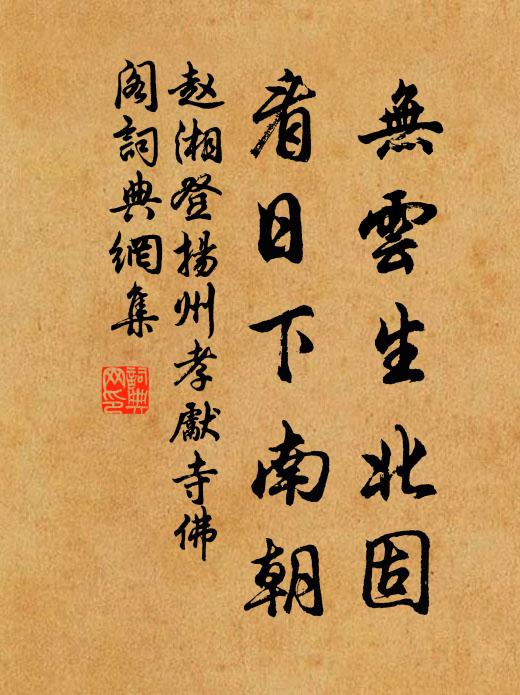 無雲生北固
看日下南朝
赵湘登揚州孝獻寺佛
阁詞典網集
詞典
网印